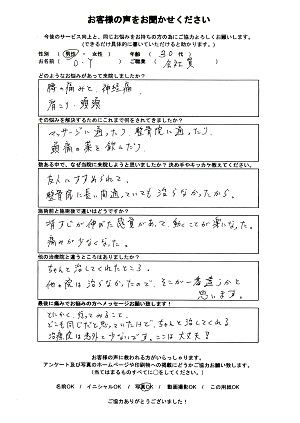 お客様の声をお聞かせください
今後のサービス向上と、同じお悩みをお持ちの方の為にご協力よろしくお願いします。
(できるだけ具体的に書いていただけると助かります。)
性別 ( 男性 ・ 女性 ) 年齢 ( 30 代 )
お名前 ( O・Y ) ご職業 ( 会社員 )
どのようなお悩みがあって来院しましたか?
腰の痛みと、神経痛、
肩こり・頭痛
その悩みを解決するためにこれまで何をされてきましたか?
マッサージに通ったり、整骨院に通ったり、
頭痛の薬を飲んだり
数ある中で、なぜ当院に来院しようと思いましたか? 決め手やキッカケ教えてください。
友人にすすめられて、
整骨院に長い間通っていても治らなかったから。
施術前と施術後で違いはどうですか?
背すじが伸びた感覚があって、動くことが楽になった。
痛みが少なくなった。
他の治療院と違うところはありましたか?
ちゃんと治してくれたところ。
他の院は治らなかったので、そこが一番違うかと
思います。
最後に痛みでお悩みの方へメッセージお願い致します!
とにかく、行ってみること。
どこも同じだと思っていたけど、ちゃんと治してくれる
治療院は意外と少ないです。ここは大丈夫!
お客様の声に救われる方がいらっしゃいます。
アンケート及び写真のホームページや印刷物への掲載にどうかご協力お願い致します。
(当てはまるもの全てに〇をしてください。)
名前OK / イニシャルOK / 写真OK / 動画撮影OK / この用紙OK
ご協力ありがとうございました!